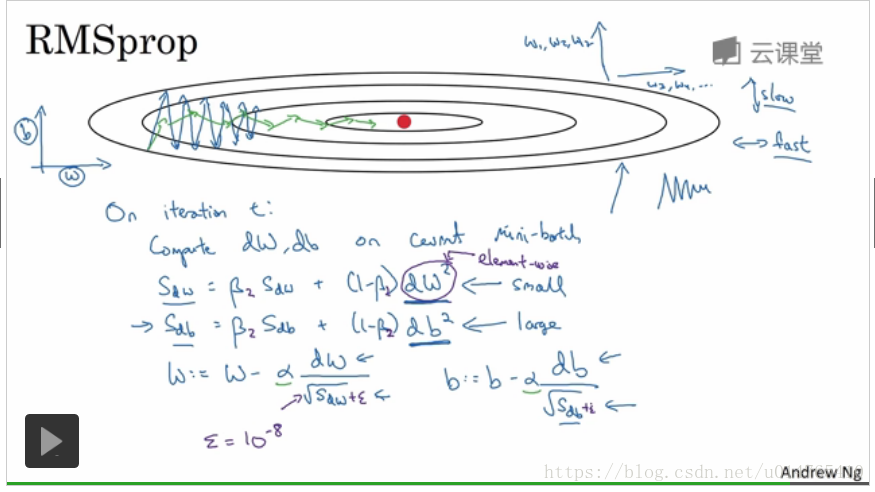 RMSprop
云课堂
w₁, w₂, w₂
w₃, w₄, ...
slow
fast
b
w
On iteration t:
Compute dW, db on current mini-batch
element-wise
Sdw = β₂ Sdw + (1-β₂) dW² ← small
→ Sdb = β₂ Sdb + (1-β₂) db² ← large
W := W - α dW / √Sdw+ε ←
b := b - α db / √Sdb+ε ←
ε = 10⁻⁸
Andrew Ng